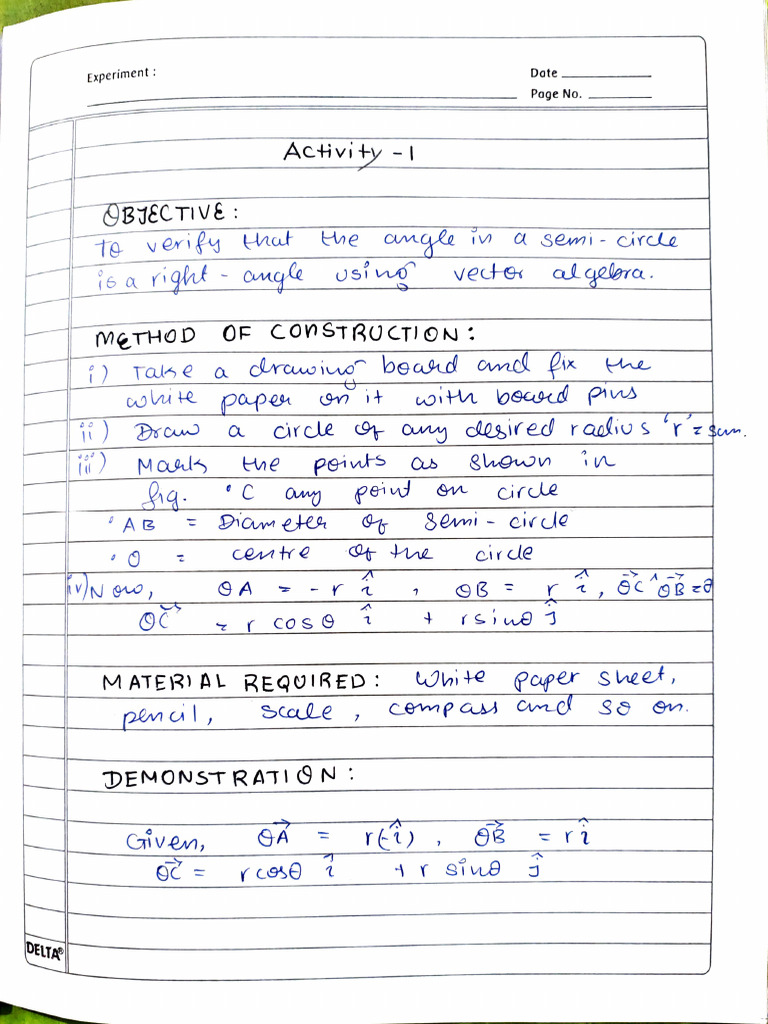 Experiment :
Date
Page No.
Activity - 1
OBJECTIVE :
To verify that the angle in a semi-circle
is a right-angle using vector algebra.
METHOD OF CONSTRUCTION :
i) Take a drawing board and fix the
white paper on it with board pins
ii) Draw a circle of any desired radius 'r' = 5cm.
iii) Mark the points as shown in
fig. • C any point on circle
• AB = Diameter of semi-circle
• O = centre of the circle
iv) Now, OA = -r î , OB = r î , OC⃗ ^ OB⃗ = θ
OC⃗ = r cosθ î + r sinθ ĵ
MATERIAL REQUIRED : White paper sheet,
pencil, scale, compass and so on.
DEMONSTRATION :
Given, OA⃗ = r(-î) , OB⃗ = r î
OC⃗ = r cosθ î + r sinθ ĵ
DELTA®